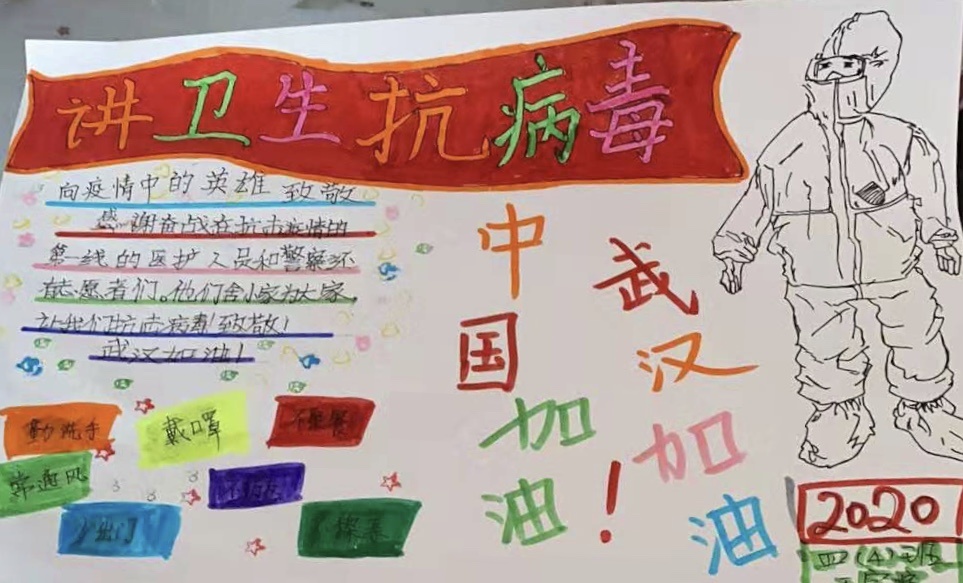 讲卫生抗病毒
向疫情中的英雄致敬
感谢奋战在抗击疫情的
第一线的医护人员和警察还
有志愿者们。他们舍小家为大家,
让我们抗击病毒!致敬!
武汉加油!
中国加油!
武汉加油
勤洗手
戴口罩
不聚餐
常通风
少出门
2020
四(4)班